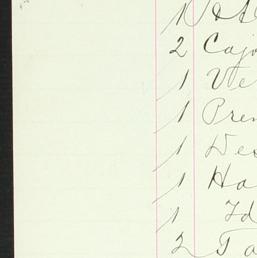 1
2 Cajo
1 Ve
1 Pren
1 Des
1 Ha
1 Id
2 Ta